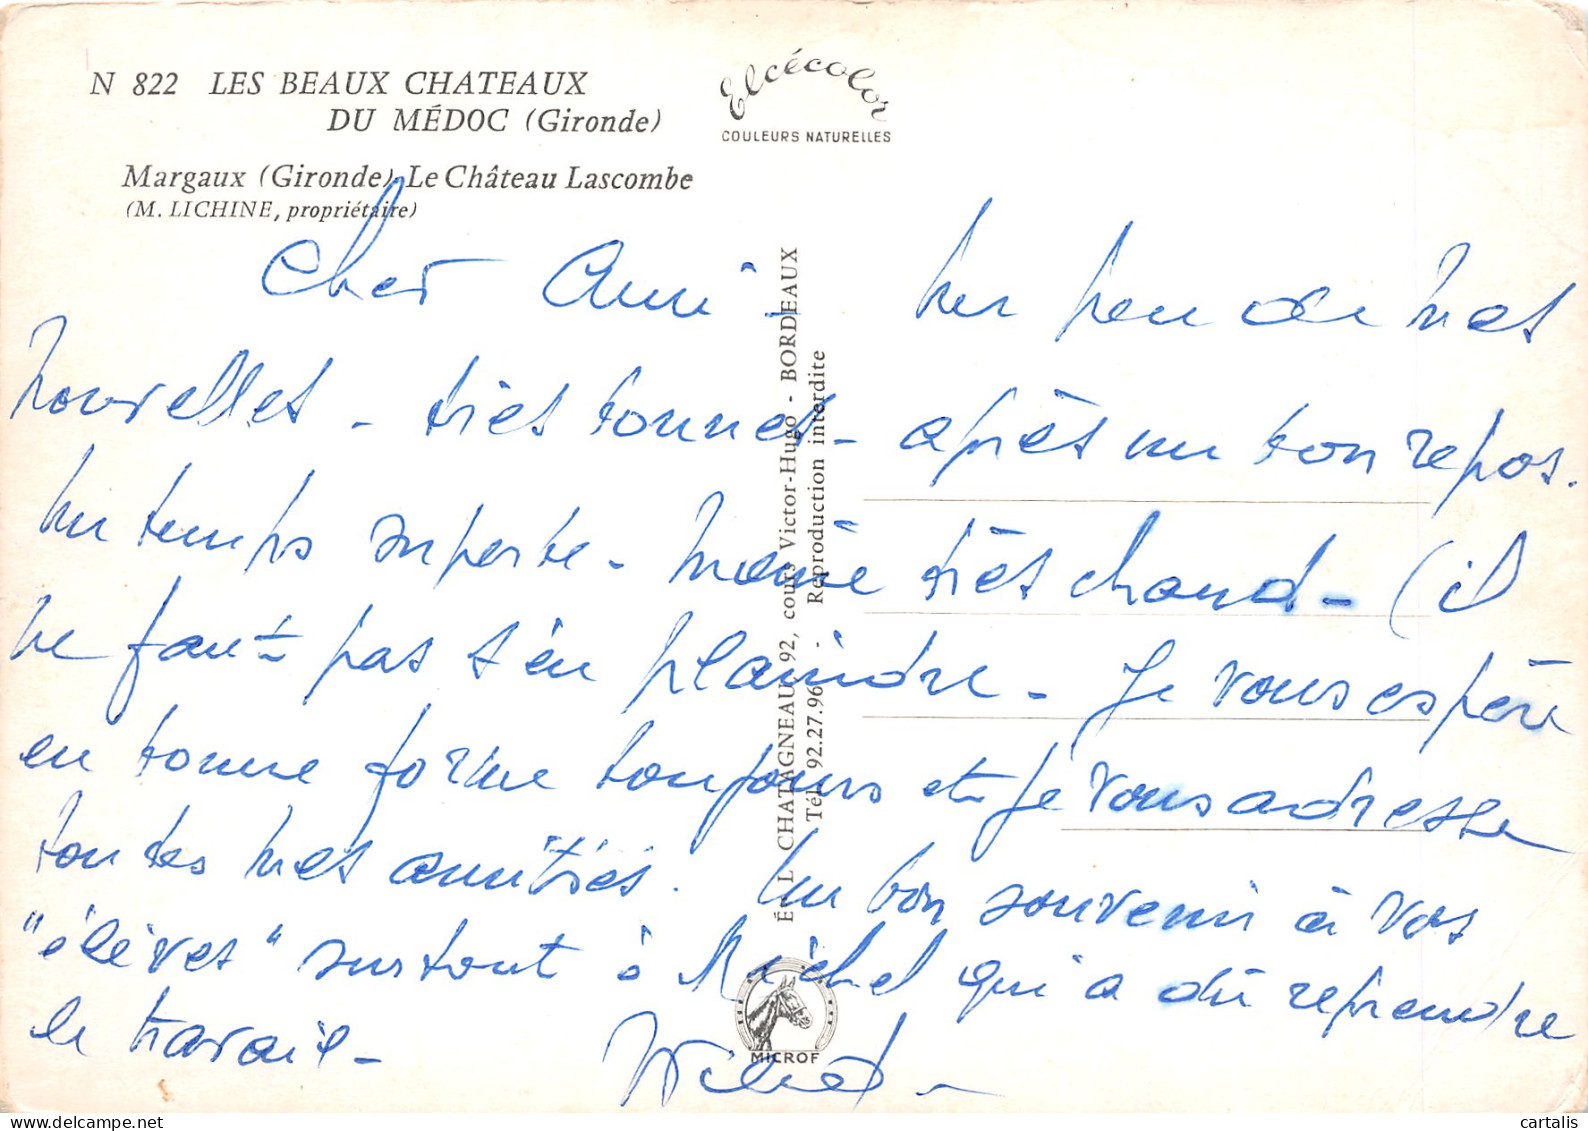 N 822 LES BEAUX CHATEAUX
DU MÉDOC (Gironde)
Margaux (Gironde) Le Château Lascombe
(M. LICHINE, propriétaire)
Elcécolor
COULEURS NATURELLES
Cher Ami - Un peu de mes
nouvelles - très bonnes - après un bon repos.
Un temps superbe - même très chaud - (il
ne faut pas s'en plaindre - Je vous espère
en bonne forme toujours et je vous adresse
toutes mes amitiés. Un bon souvenir à vos
"élèves" surtout à Michel qui a dû reprendre
le travail -
ÉD. L. CHATAGNEAU 92, cours Victor-Hugo - BORDEAUX
Tél. 92.27.96 - Reproduction interdite
MICROF
cartalis